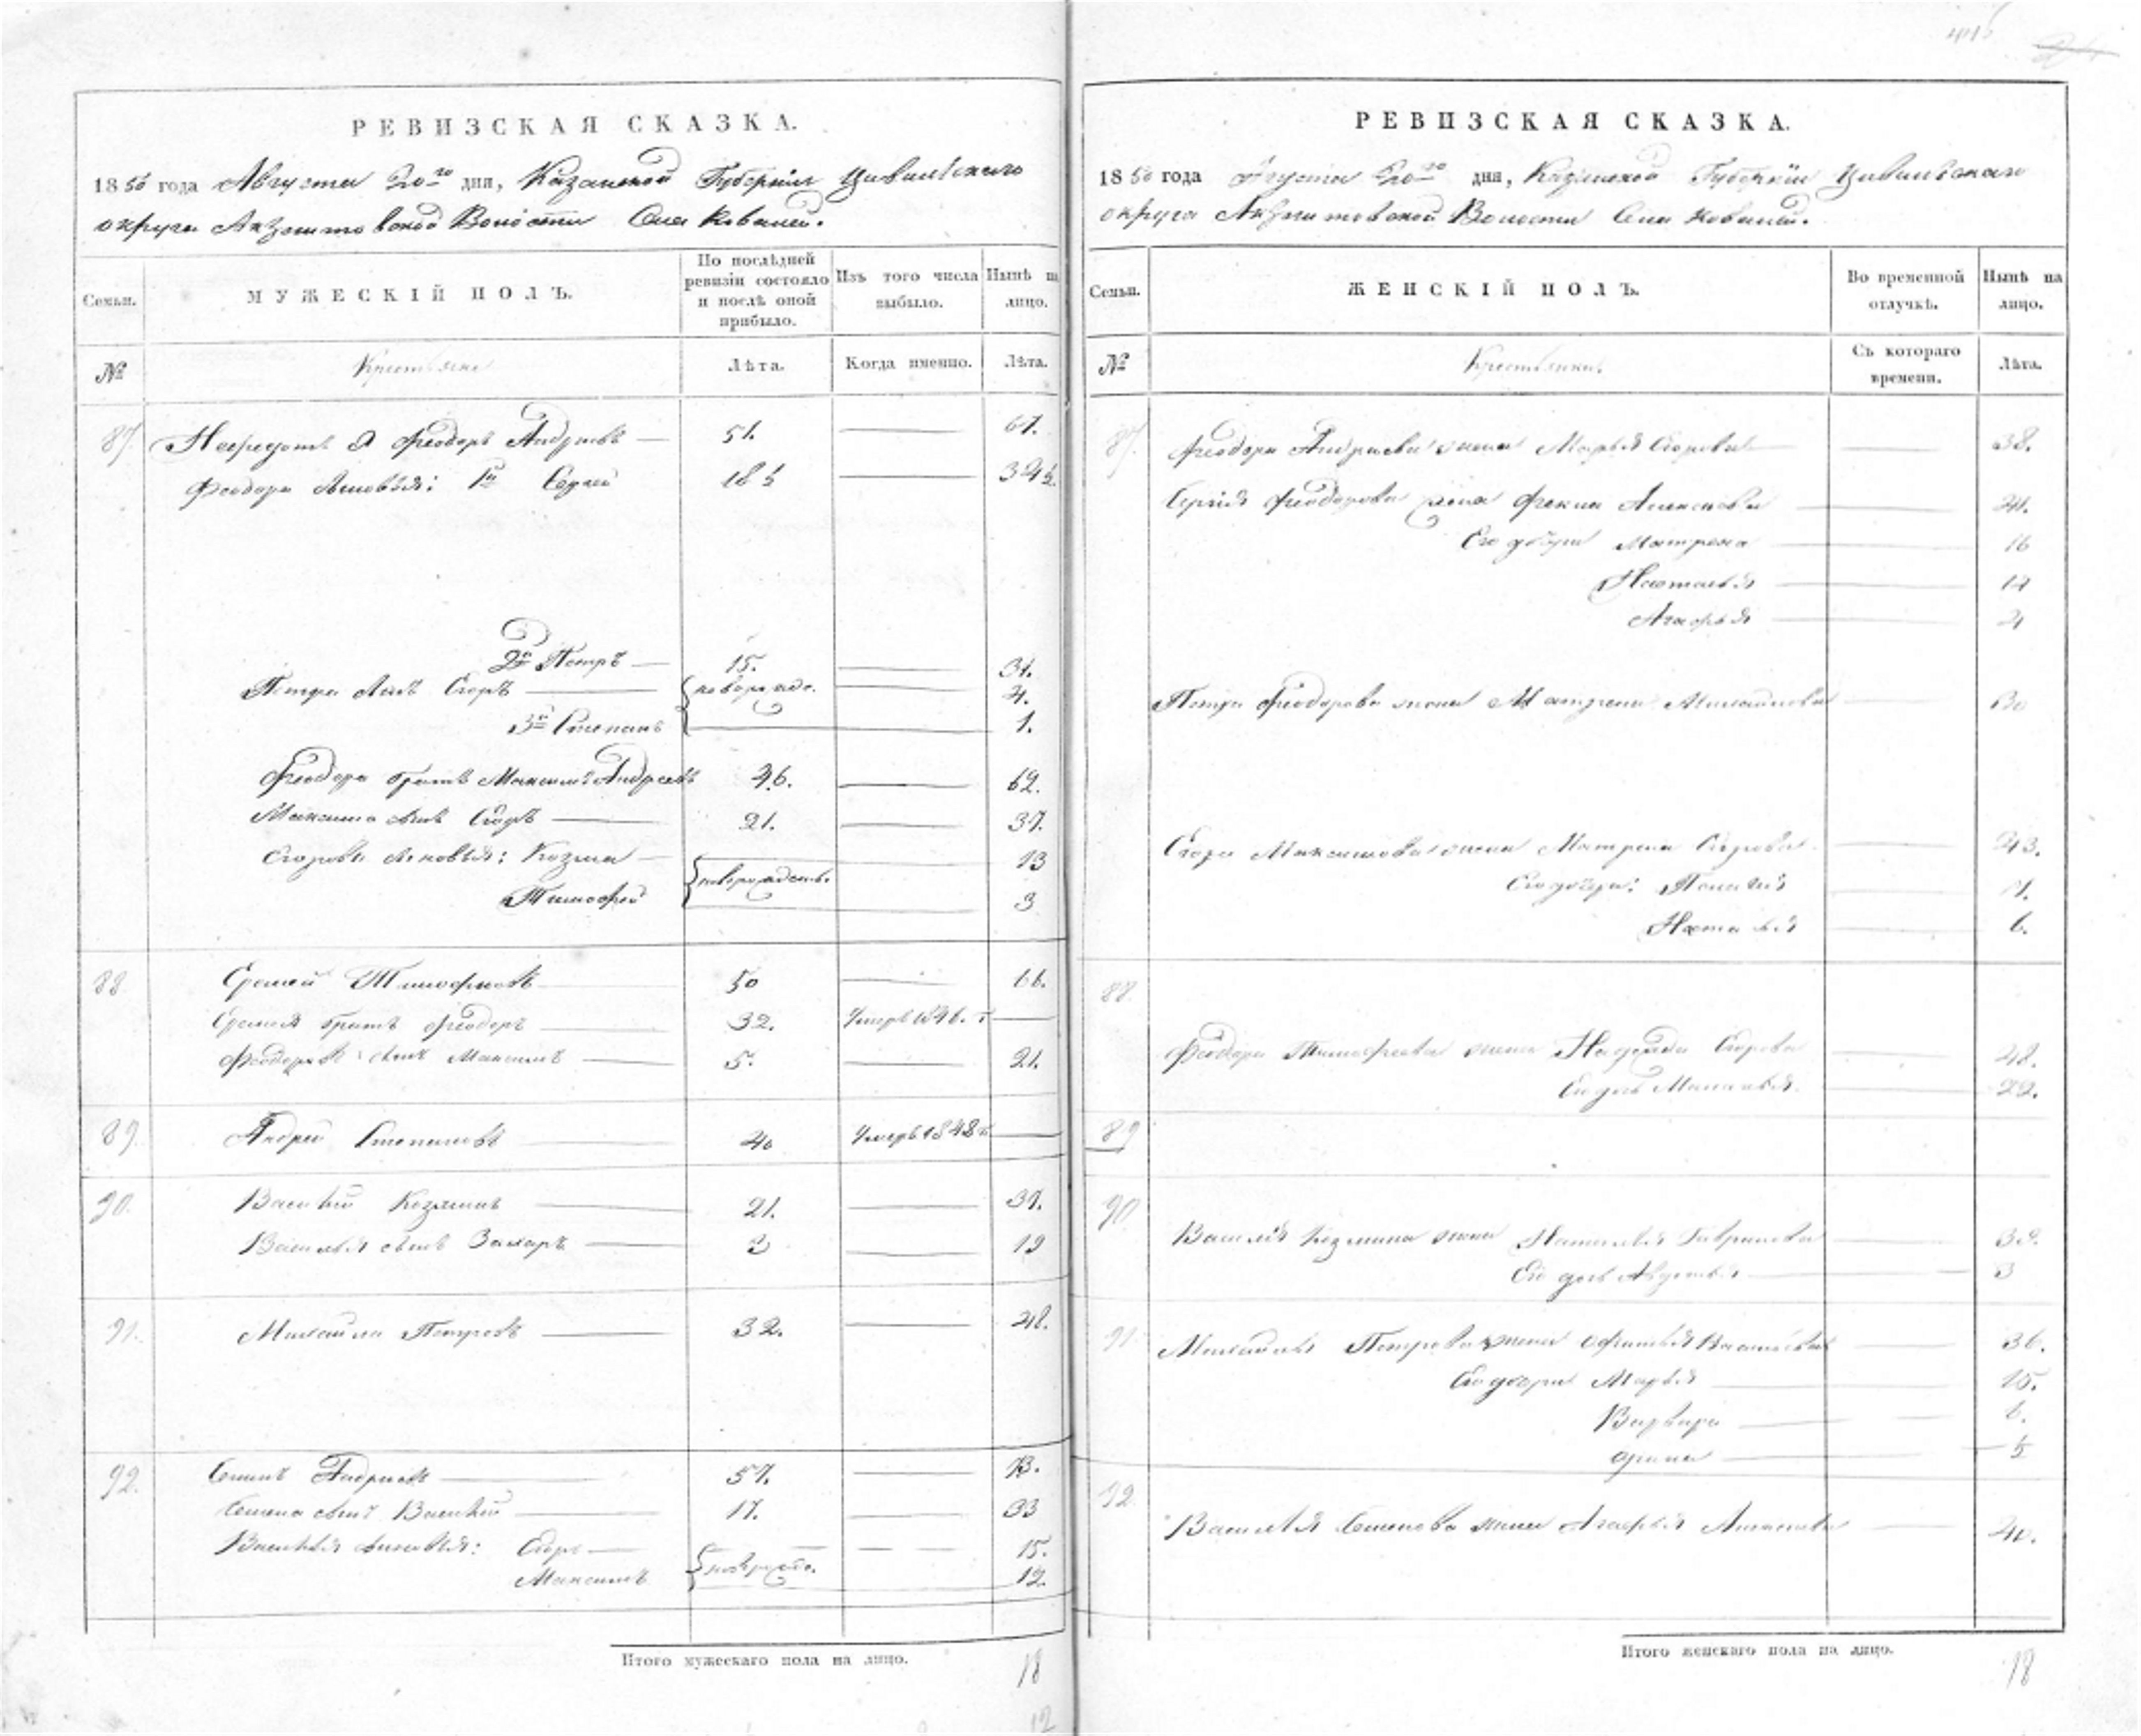 РЕВИЗСКАЯ СКАЗКА.
1850 года Августа 20го дня, Казанской Губерніи Цивильскаго
округа Акзегитовской Волости Села Ковалей.
Семьи.
МУЖЕСКІЙ ПОЛЪ.
По послѣдней ревизіи состояло и послѣ оной прибыло.
Изъ того числа выбыло.
Нынѣ на лицо.
№
Крестьяне
Лѣта.
Когда именно.
Лѣта.
87. Ѳеодоръ Андреевъ — 51. — 67.
Ѳеодора сыновья: 1й Сергей 18½ — 34½
2й Петръ — 15. — 31.
Петра сынъ Егоръ — новорожд. — 4.
3й Степанъ — 1.
Ѳеодора братъ Максимъ Андреевъ 46. — 62.
Максима сынъ Егоръ — 21. — 37.
Егоровы сыновья: Козма — новорожден. 13
Тимофей — 3
88. Еремей Тимофеевъ 50 — 66.
Еремея братъ Ѳеодоръ — 32. Умеръ 1846. г —
Ѳеодоровъ сынъ Максимъ — 5. — 21.
89. Андрей Степановъ — 40 Умеръ 1848 г. —
90. Василій Козминъ — 21. — 37.
Василья сынъ Захаръ — 3 — 19
91. Михайла Петровъ — 32. — 48.
92. Семенъ Гавриловъ — 57. — 73.
Семена сынъ Василій — 17. — 33
Василья сыновья: Егоръ — новорожд. — 15.
Максимъ 12.
Итого мужескаго пола на лицо. 18
12
РЕВИЗСКАЯ СКАЗКА.
1850 года Августа 20го дня, Казанской Губерніи Цивильскаго
округа Акзегитовской Волости Села Ковалей.
Семьи.
ЖЕНСКІЙ ПОЛЪ.
Во временной отлучкѣ.
Нынѣ на лицо.
№
Крестьянки.
Съ котораго времени.
Лѣта.
87. Ѳеодора Андреева жена Марья Егорова — 38.
Сергія Ѳеодорова жена Фекла Алексеева — 41.
Его дочери Матрена — 16
Настасья — 14
Агафья — 4
Петра Ѳеодорова жена Матрена Михайлова — 30
Егора Максимова жена Матрена Егорова — 43.
Его дочери: Пелагія
Настасья — 6.
88.
Ѳеодора Тимофеева жена Надежда Егорова — 48.
Его дочь — 22.
89
90. Василія Козмина жена Наталья Гаврилова — 39.
Его дочь Авдотья — 3
91. Михайлы Петрова жена Васильева — 36.
Его дочери Марья — 15.
Варвара
Арина — 5
92.
Василья Семенова жена Агафья — 40.
Итого женскаго пола на лицо. 18